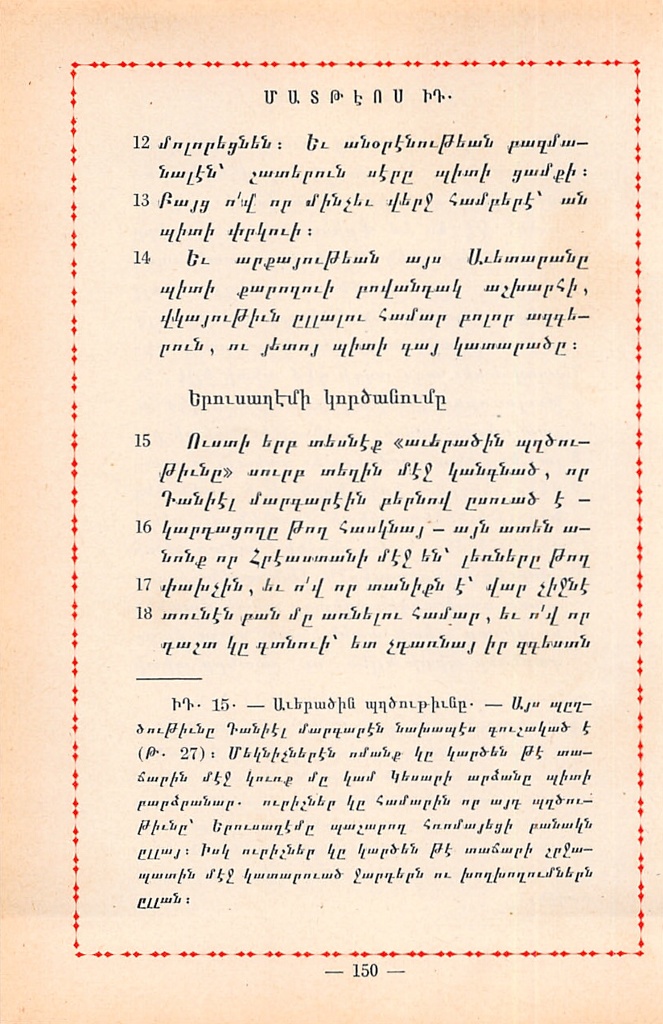 ՄԱՏԹԷՈՍ ԻԴ.
12 մոլորեցնեն։ Եւ անօրէնութեան բազմա—
նալէն՝ շատերուն սէրը պիտի ցամքի։
13 Բայց ո՛վ որ մինչեւ վերջ համբերէ՝ ան
պիտի փրկուի։
14 Եւ արքայութեան այս Աւետարանը
պիտի քարոզուի բովանդակ աշխարհի,
վկայութիւն ըլլալու համար բոլոր ազգե—
րուն, ու յետոյ պիտի գայ կատարածը։
Երուսաղէմի կործանումը
15 Ուստի երբ տեսնէք «աւերածին պղծու—
թիւնը» սուրբ տեղին մէջ կանգնած, որ
Դանիէլ մարգարէին բերնով ըսուած է —
16 կարդացողը թող հասկնայ — այն ատեն ա—
նոնք որ Հրէաստանի մէջ են՝ լեռները թող
17 փախչին, եւ ո՛վ որ տանիքն է՝ վար չիջնէ
18 տունէն բան մը առնելու համար, եւ ո՛վ որ
դաշտ կը գտնուի՝ ետ չդառնայ իր զգեստն
ԻԴ. 15. — Աւերածին պղծութիւնը. — Այս պըղ—
ծութիւնը Դանիէլ մարգարէն նախապէս գուշակած է
(Թ. 27)։ Մեկնիչներէն ոմանք կը կարծեն թէ տա—
ճարին մէջ կուռք մը կամ Կեսարի արձանը պիտի
բարձրանար. ուրիշներ կը համարին որ այդ պղծու—
թիւնը՝ Երուսաղէմը պաշարող Հռոմայեցի բանակն
ըլլայ։ Իսկ ուրիշներ կը կարծեն թէ տաճարի շրջա—
պատին մէջ կատարուած ջարդերն ու խողխողումներն
ըլլան։
— 150 —